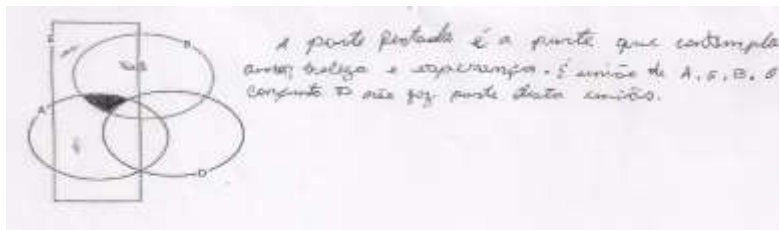 E
B
A
D
A parte pintada é a parte que contempla
amor, beleza e esperança. É união de A, E, B. O
conjunto D não faz parte desta união.